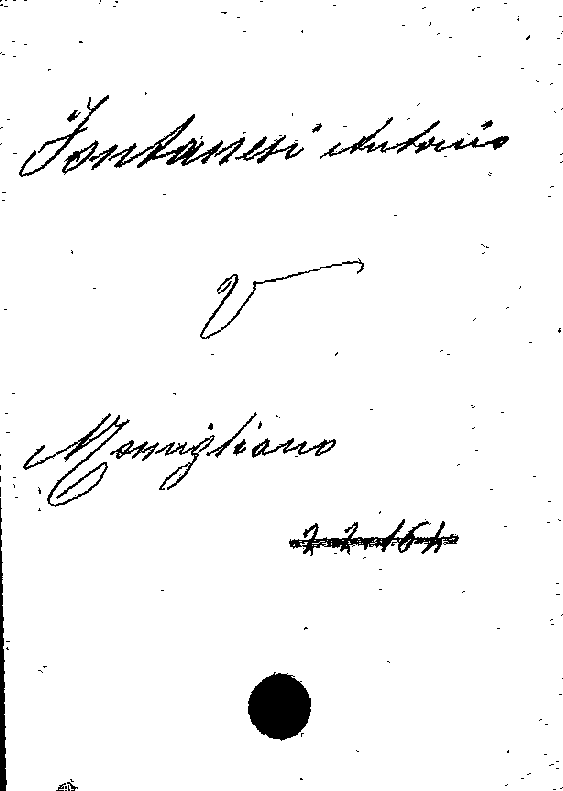 Fontanesi Antonio
V
Momigliano
22154